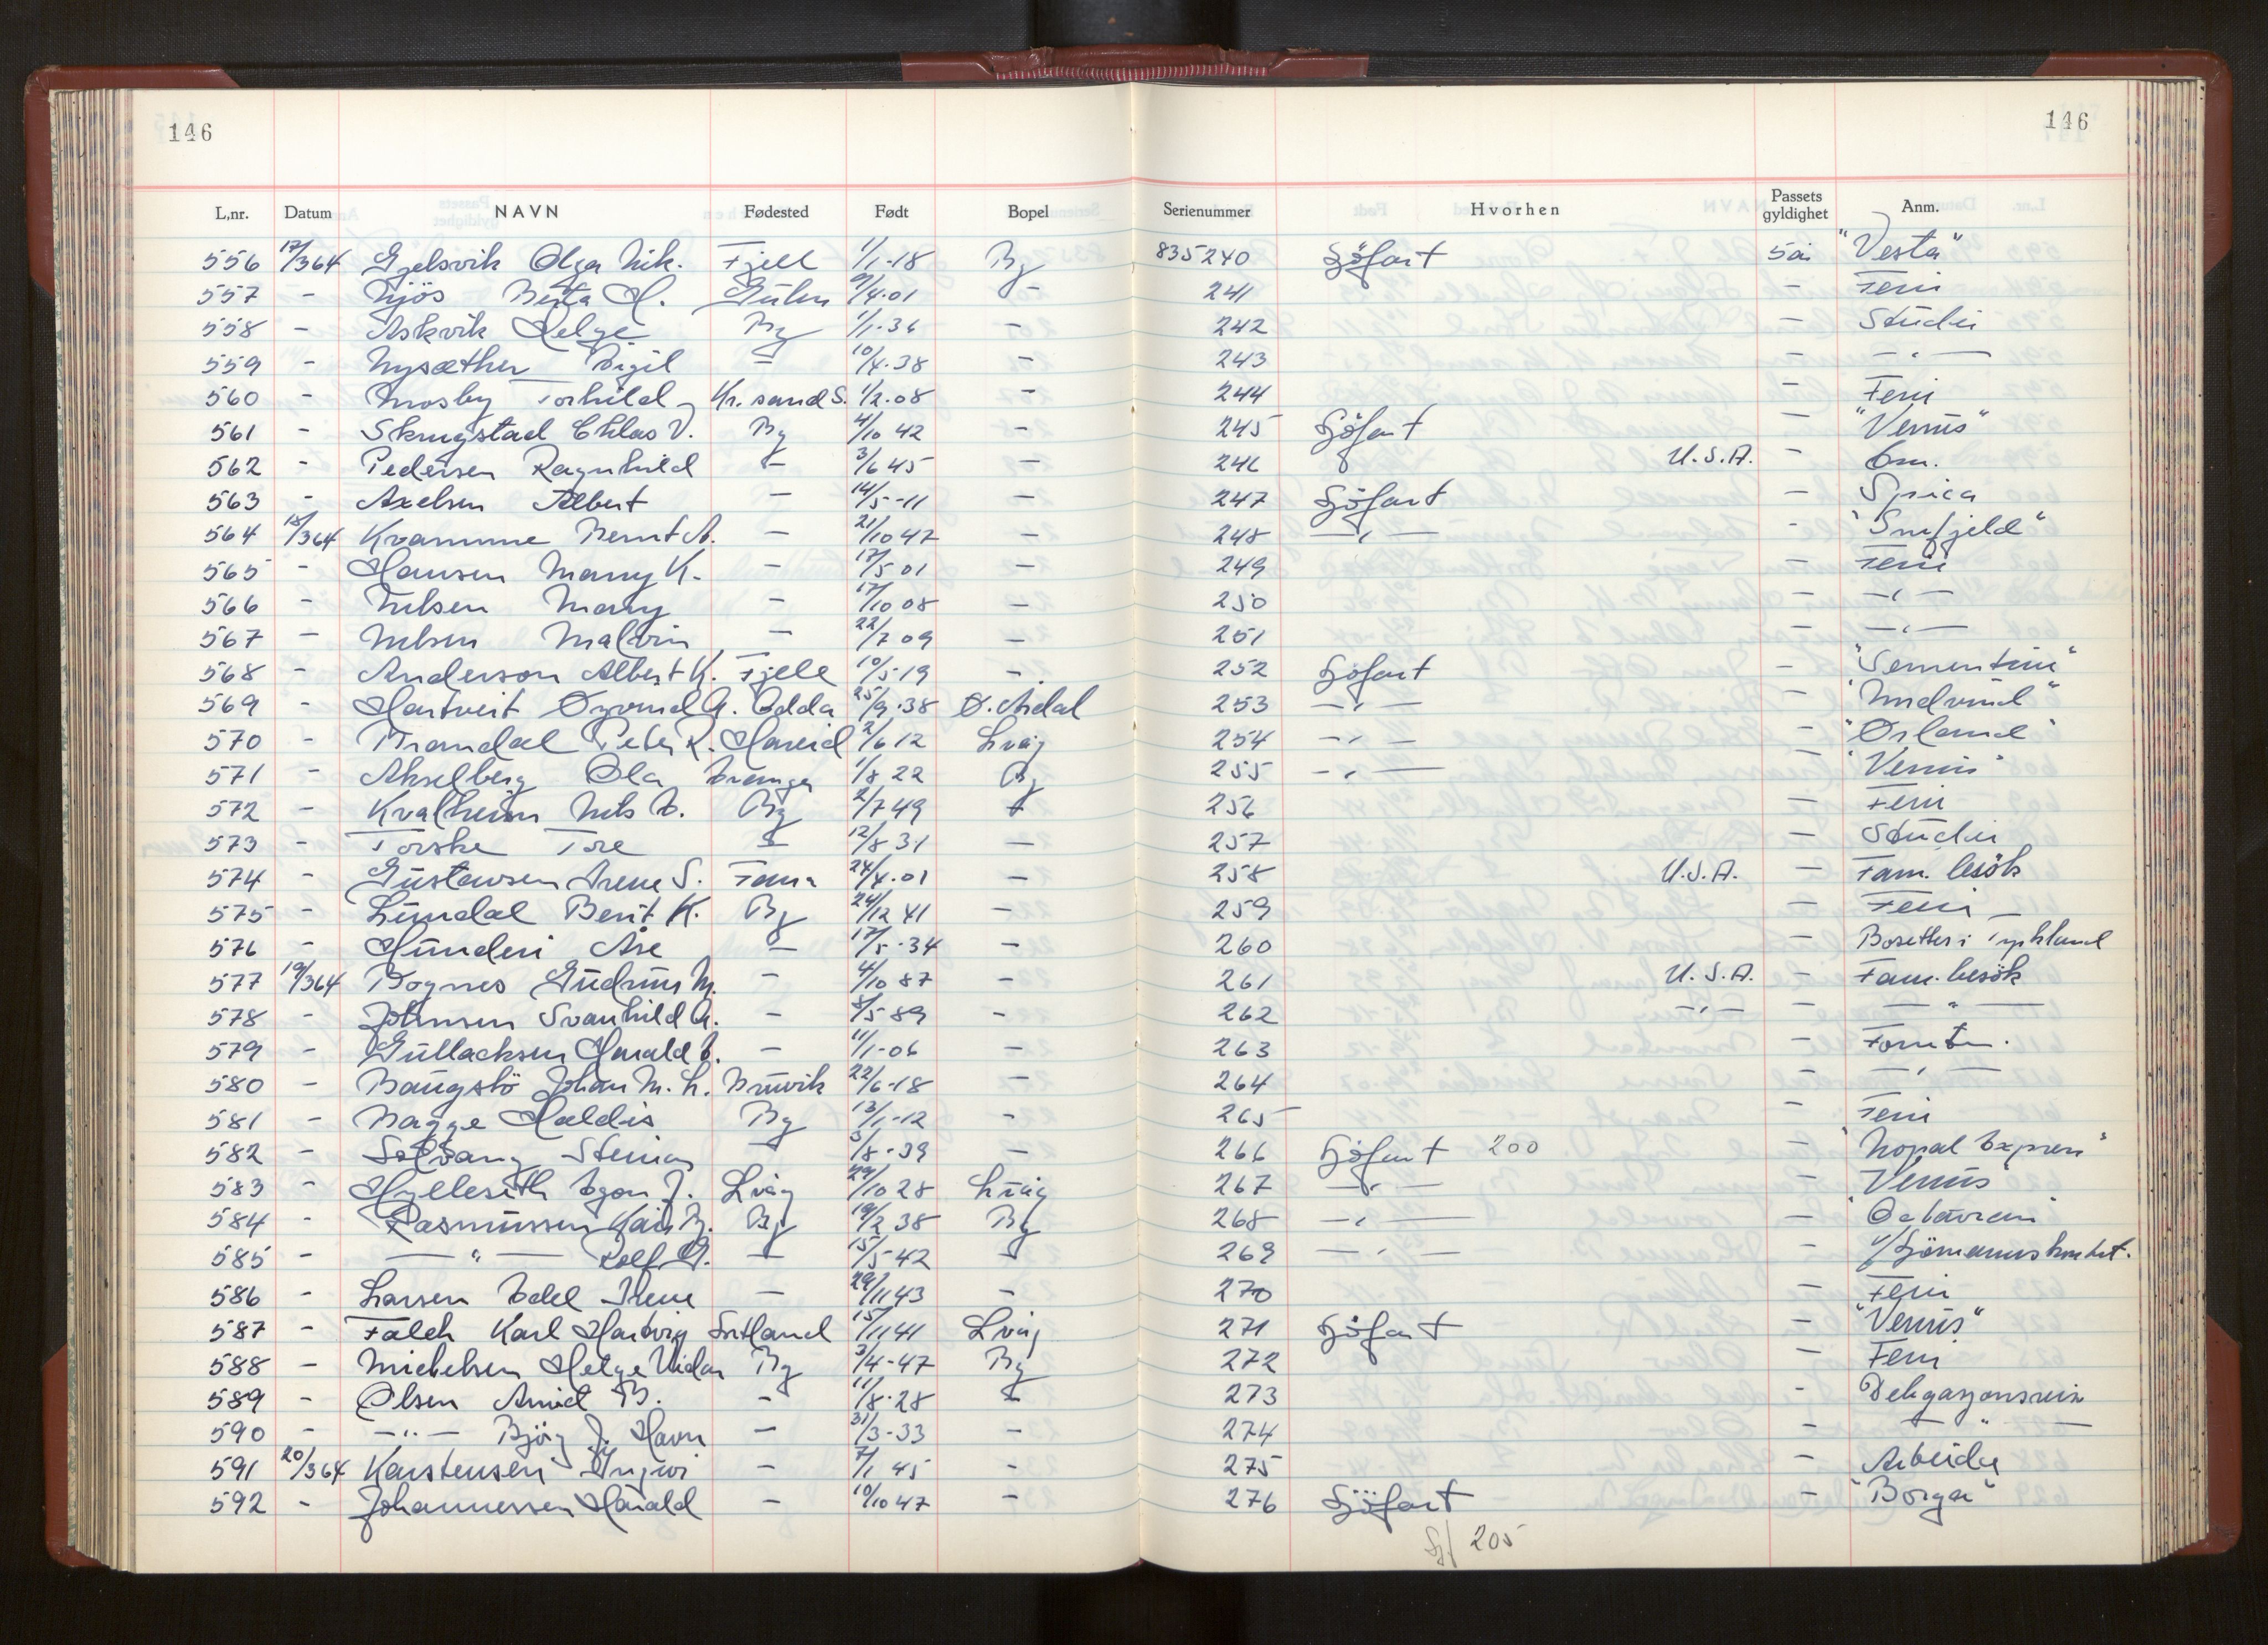 146 146
L,nr. Datum NAVN Fødested Født Bopel Serienummer Hvorhen Passets gyldighet Anm.
556 17/364 Gjelsvik Olga Nik. Fjell 1/1-18 By 835240 Sjöfart 5 år "Vesta"
557 - Njös Berta H. Gulen 9/4.01 - 241 - Ferie
558 - Askvik Helge By 1/1-36 - 242 - Studier
559 - Nysæther Eigil - 10/4.38 - 243 - - " -
560 - Mosby Torhild Kr.sand S. 1/2.08 - 244 - Ferie
561 - Skrugstad By 4/10 42 - 245 Sjöfart - "Venus"
562 - Pedersen Ragnhild - 3/6 45 - 246 U.S.A. - Em.
563 - Axelsen Albert - 14/5-11 - 247 Sjöfart - Spica
564 18/364 Kvamme Bernt A. - 21/10 47 - 248 - " - - "Snefjeld"
565 - Hansen Mary K. - 17/5 01 - 249 - Ferie
566 - Nilsen Mary - 17/10 08 - 250 - - " -
567 - Nilsen Malvin - 22/7 09 - 251 - - " -
568 - Anderson Albert K. Fjell 10/5-19 - 252 Sjöfart -
569 - Hartveit Øyvind A. Odda 25/9.38 Ø. Årdal 253 - " - -
570 - Brandal Peter R. Hareid 2/6 12 Lvåg 254 - " - - "Ørland"
571 - Akselberg Ola 1/8 22 By 255 - " - - "Venus"
572 - Kvalheim Nils E. By 2/7 49 - 256 - Ferie
573 - Torske Tore - 12/8 31 - 257 - Studier
574 - Gustavsen Arene S. Fana 24/4.01 - 258 U.S.A. - Fam. besök
575 - Lundal Berit K. By 24/12 41 - 259 - Ferie
576 - Hunderi Åse - 17/5-34 - 260 - Bosetter i Tyskland
577 19/364 Bognes Gudrun M. - 4/10 87 - 261 U.S.A. - Fam. besök
578 - Johnsen Svanhild A. - 8/5-89 - 262 - " - - - " -
579 - Gullacksen Harald E. - 11/1-06 - 263 - Forretn.
580 - Baugstö Johan M. L. Bruvik 22/6-18 - 264 - - " -
581 - Bagge Haldis By 13/1-12 - 265 - Ferie
582 - Solvang Steinar - 3/8-39 - 266 Sjöfart 200 - "Nopal Express"
583 - Hylleseth Egon J. Lvåg 29/10 28 Lvåg 267 - " - - Venus
584 - Rasmussen Kåre B. By 19/2 38 By 268 - " - -
585 - - " - Rolf G. - 15/5-42 - 269 - " - - v/Sjömannskontot.
586 - Larsen Edel Irene - 29/11 43 - 270 - Ferie
587 - Falch Karl Hartvig Sortland 15/11 41 Lvåg 271 Sjöfart - "Venus"
588 - Michelsen Helge Vidar By 3/4-47 By 272 - Ferie
589 - Olsen Arvid B. - 11/8-28 - 273 - Delegasjonsreise
590 - - " - Björg J. Havn - 31/3-33 - 274 - - " -
591 20/364 Karstensen Ingwi - 7/1 45 - 275 - Arbeider
592 - Johannessen Harald - 10/10 47 - 276 Sjöfart - "Borga"
Sjf 205